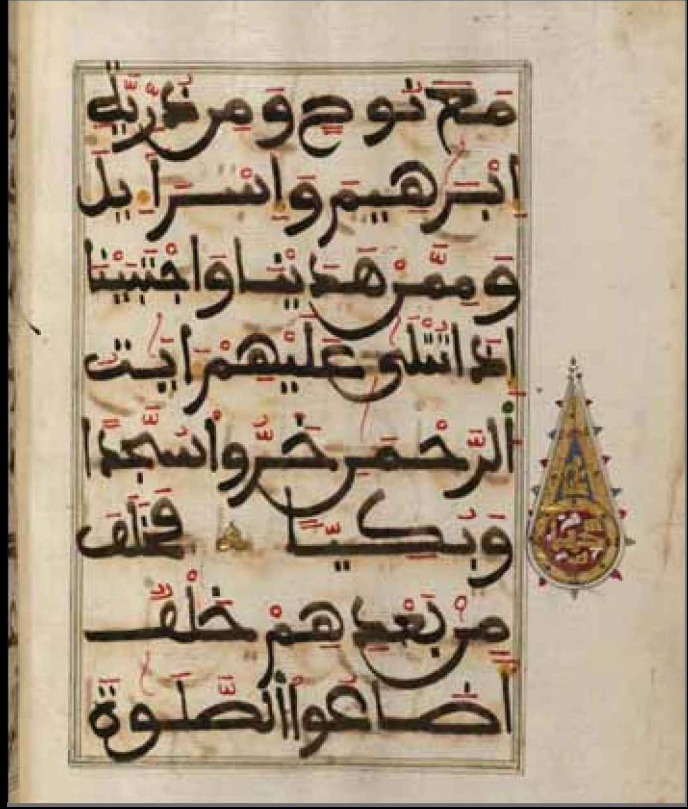 مَعَ نُوحٍ وَمِن ذُرِّيَّةِ
إِبْرَٰهِيمَ وَإِسْرَآءِيلَ
وَمِمَّنْ هَدَيْنَا وَاجْتَبَيْنَا
إِذَا تُتْلَىٰ عَلَيْهِمْ ءَايَٰتُ
الرَّحْمَٰنِ خَرُّوا سُجَّدًا
وَبُكِيًّا فَخَلَفَ
مِنْ بَعْدِهِمْ خَلْفٌ
أَضَاعُوا الصَّلَوٰةَ